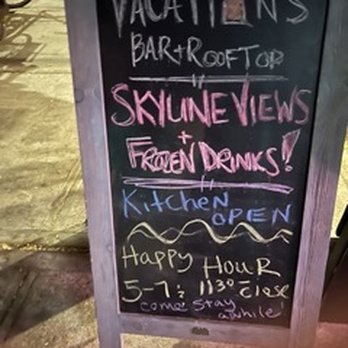 VACATIONS
BAR + ROOFTOP
SKYLINE VIEWS
+
FROZEN DRINKS!
Kitchen
OPEN
Happy Hour
5-7 & 1130 - Close
come stay
awhile!